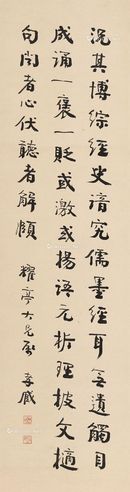 況其博綜經史諳究儒墨經耳無遺觸目
成誦一褒一貶或激或揚語元析理披文摘
句聞者心伏聽者解頤
耀亭大兄屬 李